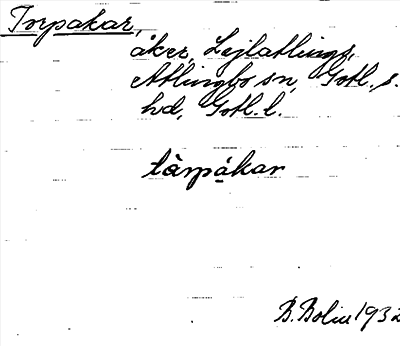 Torpakar,
åker, Lejlatlings,
Atlingbo sn, Gotl. s.
hd, Gotl. l.
tàrpákar
B. Bolin 1932